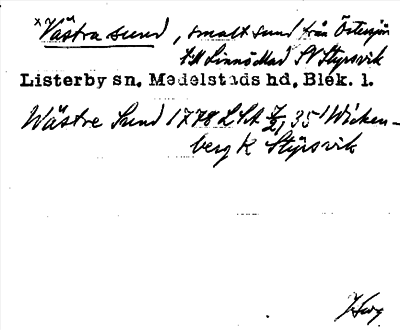 ×Västra sund, smalt sund från Östersjön
till Linnömad SV Styrsvik
Listerby sn, Medelstads hd, Blek. l.
Wästre Sund 1778 LSA 35 Wicken-
berg K Styrsvik